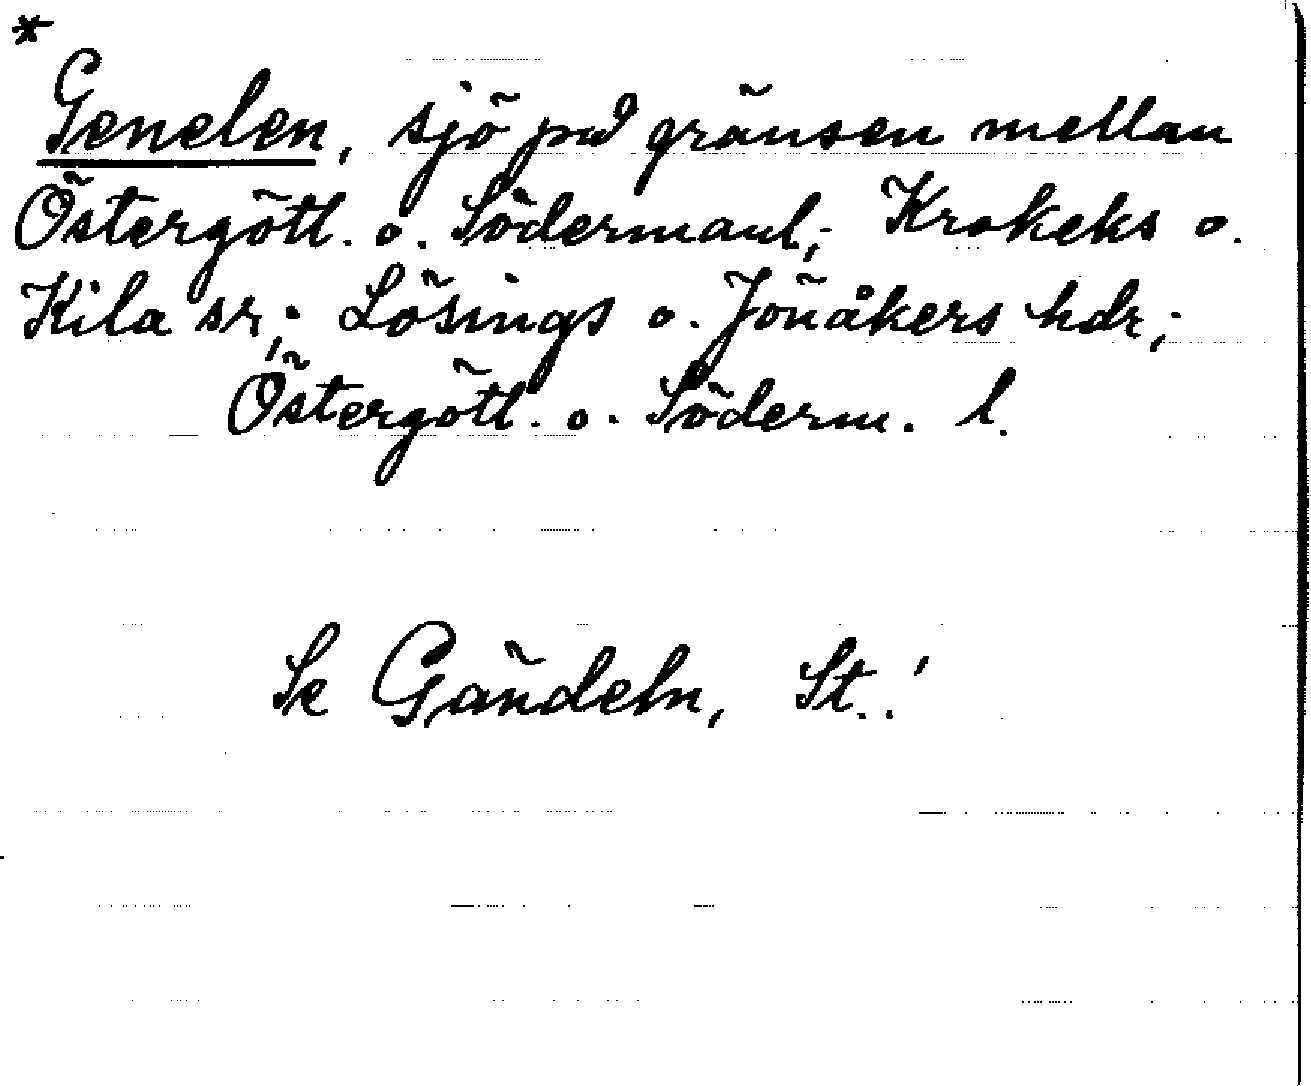 *
Genelen, sjö på gränsen mellan
Östergötl. o. Södermanl,; Krokeks o.
Kila sr,; Lösings o. Jönåkers hdr,;
Östergötl. o. Söderm. l.
Se Gändeln, St..!